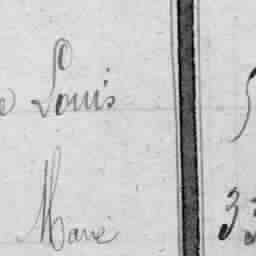 Louis
Marie 33